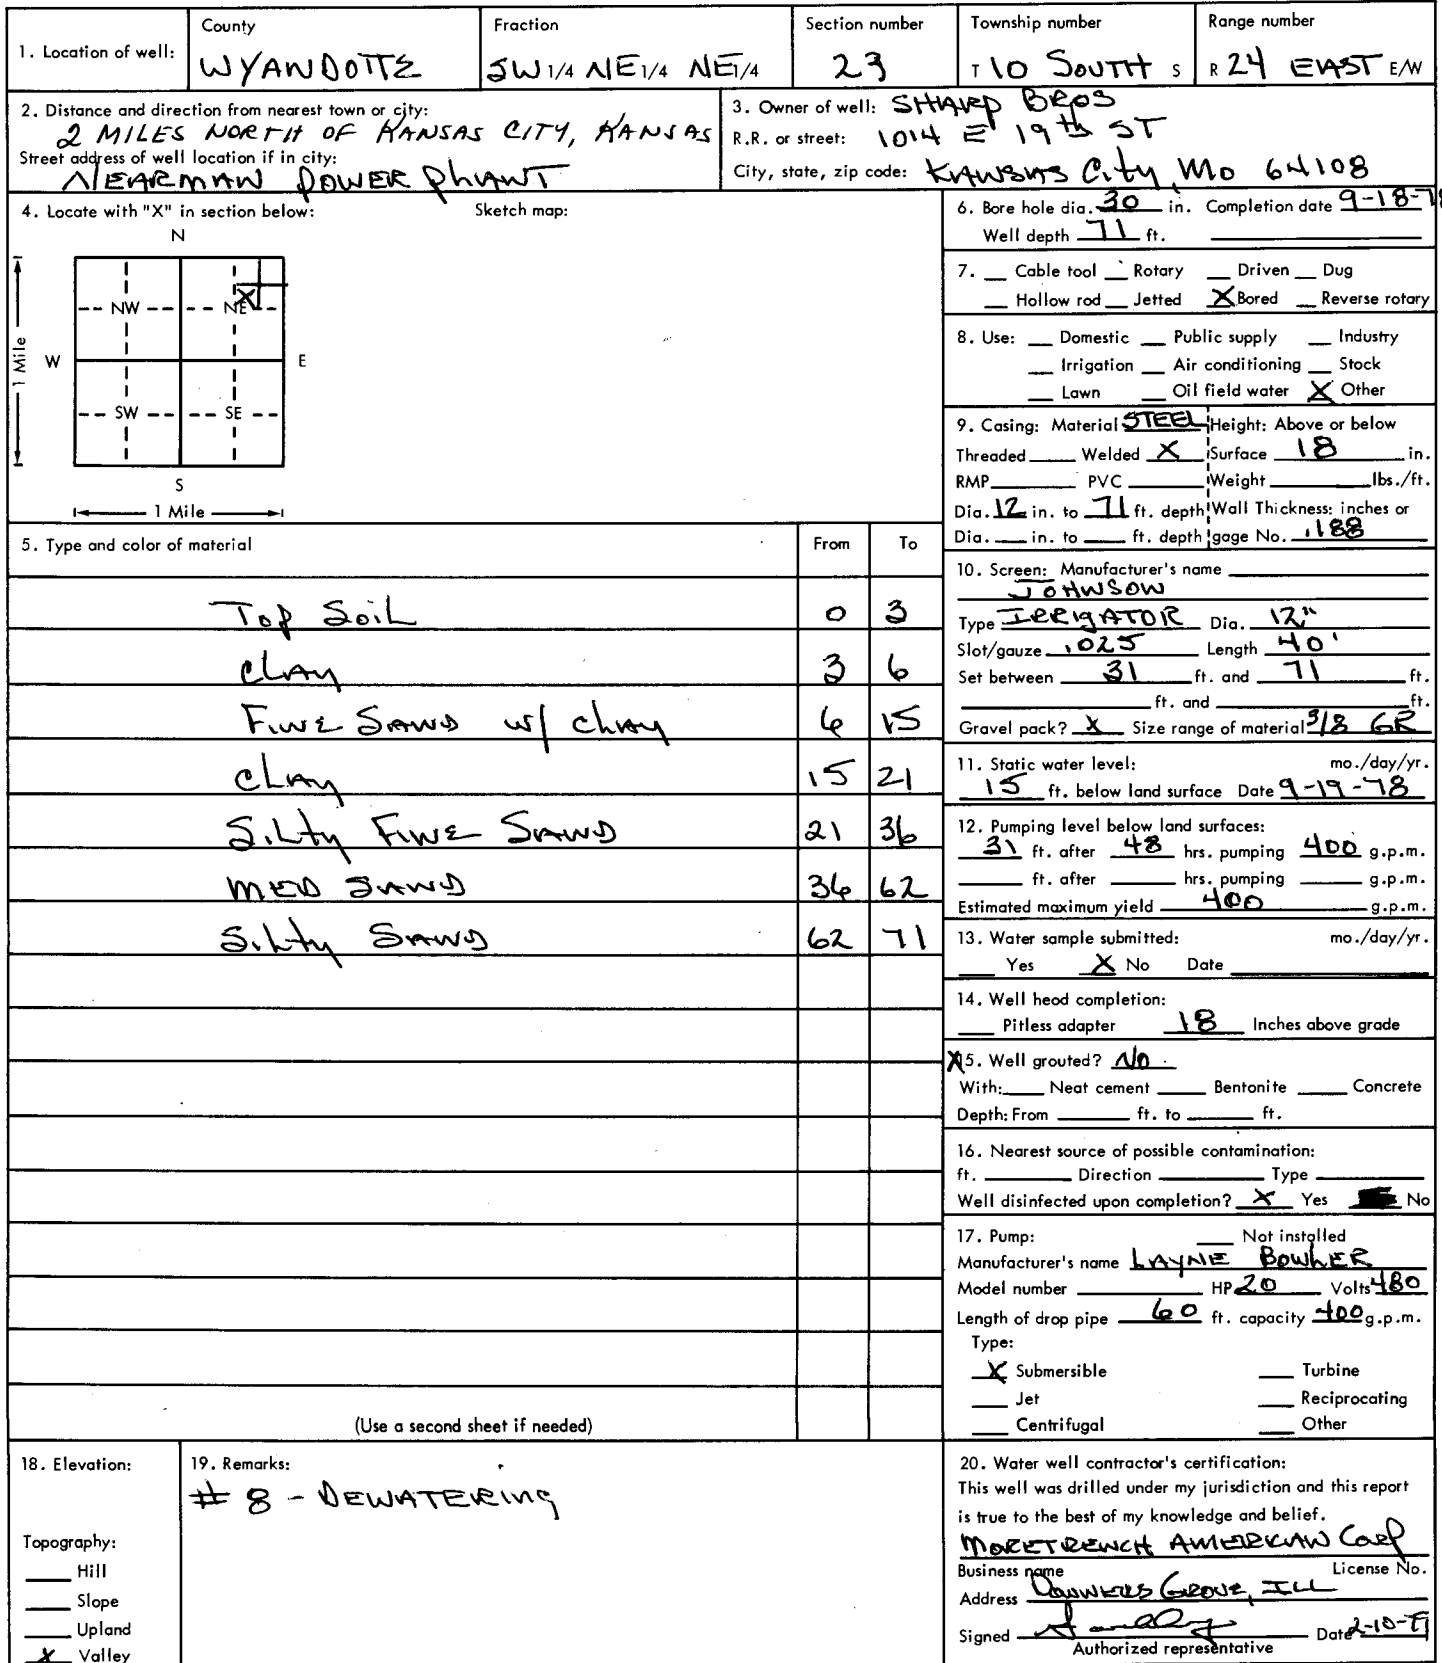 1. Location of well:
County
WYANDOTTE
Fraction
SW 1/4 NE 1/4 NE 1/4
Section number
23
Township number
T 10 SOUTH S
Range number
R 24 EAST E/W
2. Distance and direction from nearest town or city:
2 MILES NORTH OF KANSAS CITY, KANSAS
Street address of well location if in city:
NEARMAN POWER PLANT
3. Owner of well: SHARP BROS
R.R. or street: 1014 E 19th ST
City, state, zip code: KANSAS City, Mo 64108
4. Locate with "X" in section below:
Sketch map:
N
NW
NE
X
W
E
SW
SE
S
1 Mile
1 Mile
5. Type and color of material
From
To
Top Soil 0 3
CLAY 3 6
FINE SAND w/ CLAY 6 15
CLAY 15 21
SiLty FINE SAND 21 36
MED SAND 36 62
SiLty SAND 62 71
(Use a second sheet if needed)
6. Bore hole dia. 30 in. Completion date 9-18-78
Well depth 71 ft.
7. Cable tool Rotary Driven Dug
Hollow rod Jetted X Bored Reverse rotary
8. Use: Domestic Public supply Industry
Irrigation Air conditioning Stock
Lawn Oil field water X Other
9. Casing: Material STEEL Height: Above or below
Threaded Welded X Surface 18 in.
RMP PVC Weight lbs./ft.
Dia. 12 in. to 71 ft. depth Wall Thickness: inches or
Dia. in. to ft. depth gage No. .188
10. Screen: Manufacturer's name
JOHNSON
Type IRRIGATOR Dia. 12"
Slot/gauze .025 Length 40'
Set between 31 ft. and 71 ft.
ft. and ft.
Gravel pack? X Size range of material 3/8 GR
11. Static water level: mo./day/yr.
15 ft. below land surface Date 9-19-78
12. Pumping level below land surfaces:
31 ft. after 48 hrs. pumping 400 g.p.m.
ft. after hrs. pumping g.p.m.
Estimated maximum yield 400 g.p.m.
13. Water sample submitted: mo./day/yr.
Yes X No Date
14. Well head completion:
Pitless adapter 18 Inches above grade
X15. Well grouted? No
With: Neat cement Bentonite Concrete
Depth: From ft. to ft.
16. Nearest source of possible contamination:
ft. Direction Type
Well disinfected upon completion? X Yes No
17. Pump: Not installed
Manufacturer's name LAYNE BOWLER
Model number HP 20 Volts 480
Length of drop pipe 60 ft. capacity 400 g.p.m.
Type:
X Submersible Turbine
Jet Reciprocating
Centrifugal Other
18. Elevation:
Topography:
Hill
Slope
Upland
X Valley
19. Remarks:
# 8 - DEWATERING
20. Water well contractor's certification:
This well was drilled under my jurisdiction and this report
is true to the best of my knowledge and belief.
MORETRENCH AMERICAN CORP
Business name License No.
Address DOWNERS GROVE, ILL
Signed Date 2-10-79
Authorized representative